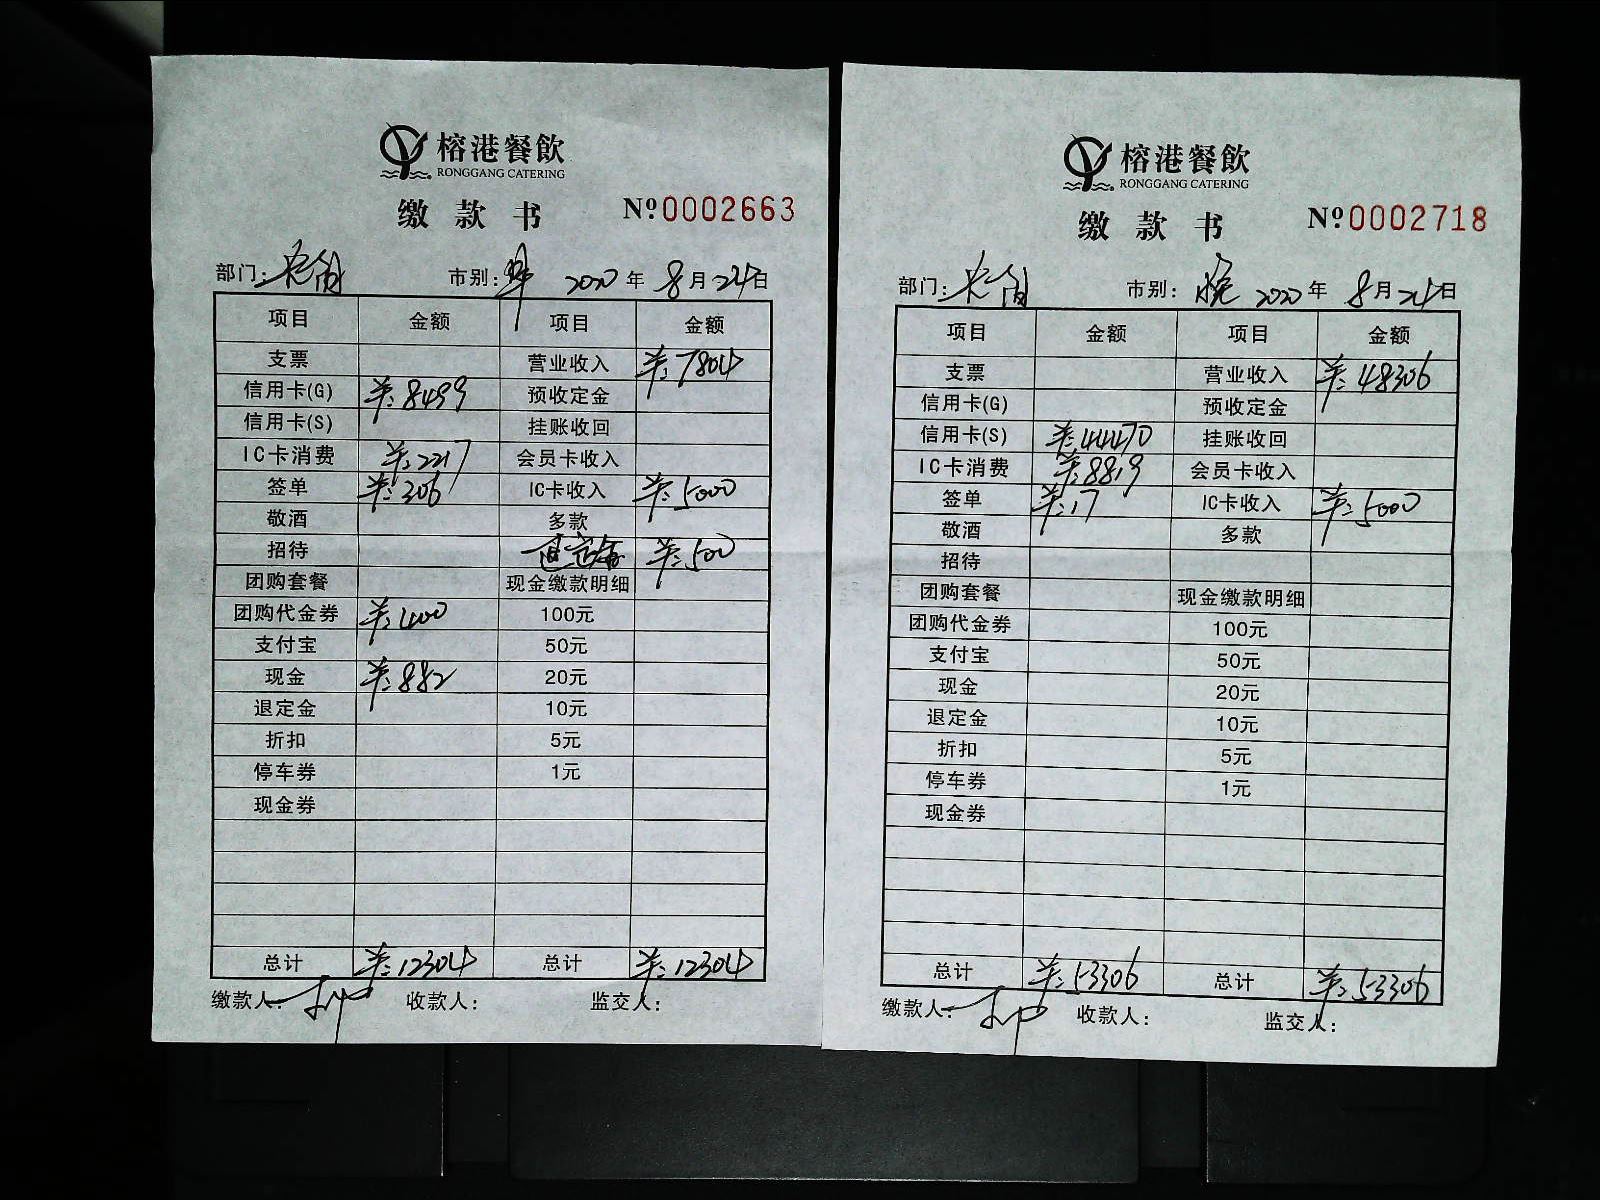 榕港餐飲
RONGGANG CATERING
缴款书 №0002663
部门: 市别: 2020年8月24日
项目 金额 项目 金额
支票 营业收入 ¥:7804
信用卡(G) ¥:8499 预收定金
信用卡(S) 挂账收回
IC卡消费 ¥:2217 会员卡收入
签单 ¥:306 IC卡收入 ¥:5000
敬酒 多款
招待 ¥:500
团购套餐 现金缴款明细
团购代金券 ¥:400 100元
支付宝 50元
现金 ¥:882 20元
退定金 10元
折扣 5元
停车券 1元
现金券
总计 ¥:12304 总计 ¥:12304
缴款人: 收款人: 监交人:
榕港餐飲
RONGGANG CATERING
缴款书 №0002718
部门: 市别:晚 2020年8月24日
项目 金额 项目 金额
支票 营业收入 ¥:48306
信用卡(G) 预收定金
信用卡(S) ¥:44470 挂账收回
IC卡消费 ¥:8819 会员卡收入
签单 ¥:17 IC卡收入 ¥:5000
敬酒 多款
招待
团购套餐 现金缴款明细
团购代金券 100元
支付宝 50元
现金 20元
退定金 10元
折扣 5元
停车券 1元
现金券
总计 ¥:53306 总计 ¥:53306
缴款人: 收款人: 监交人: